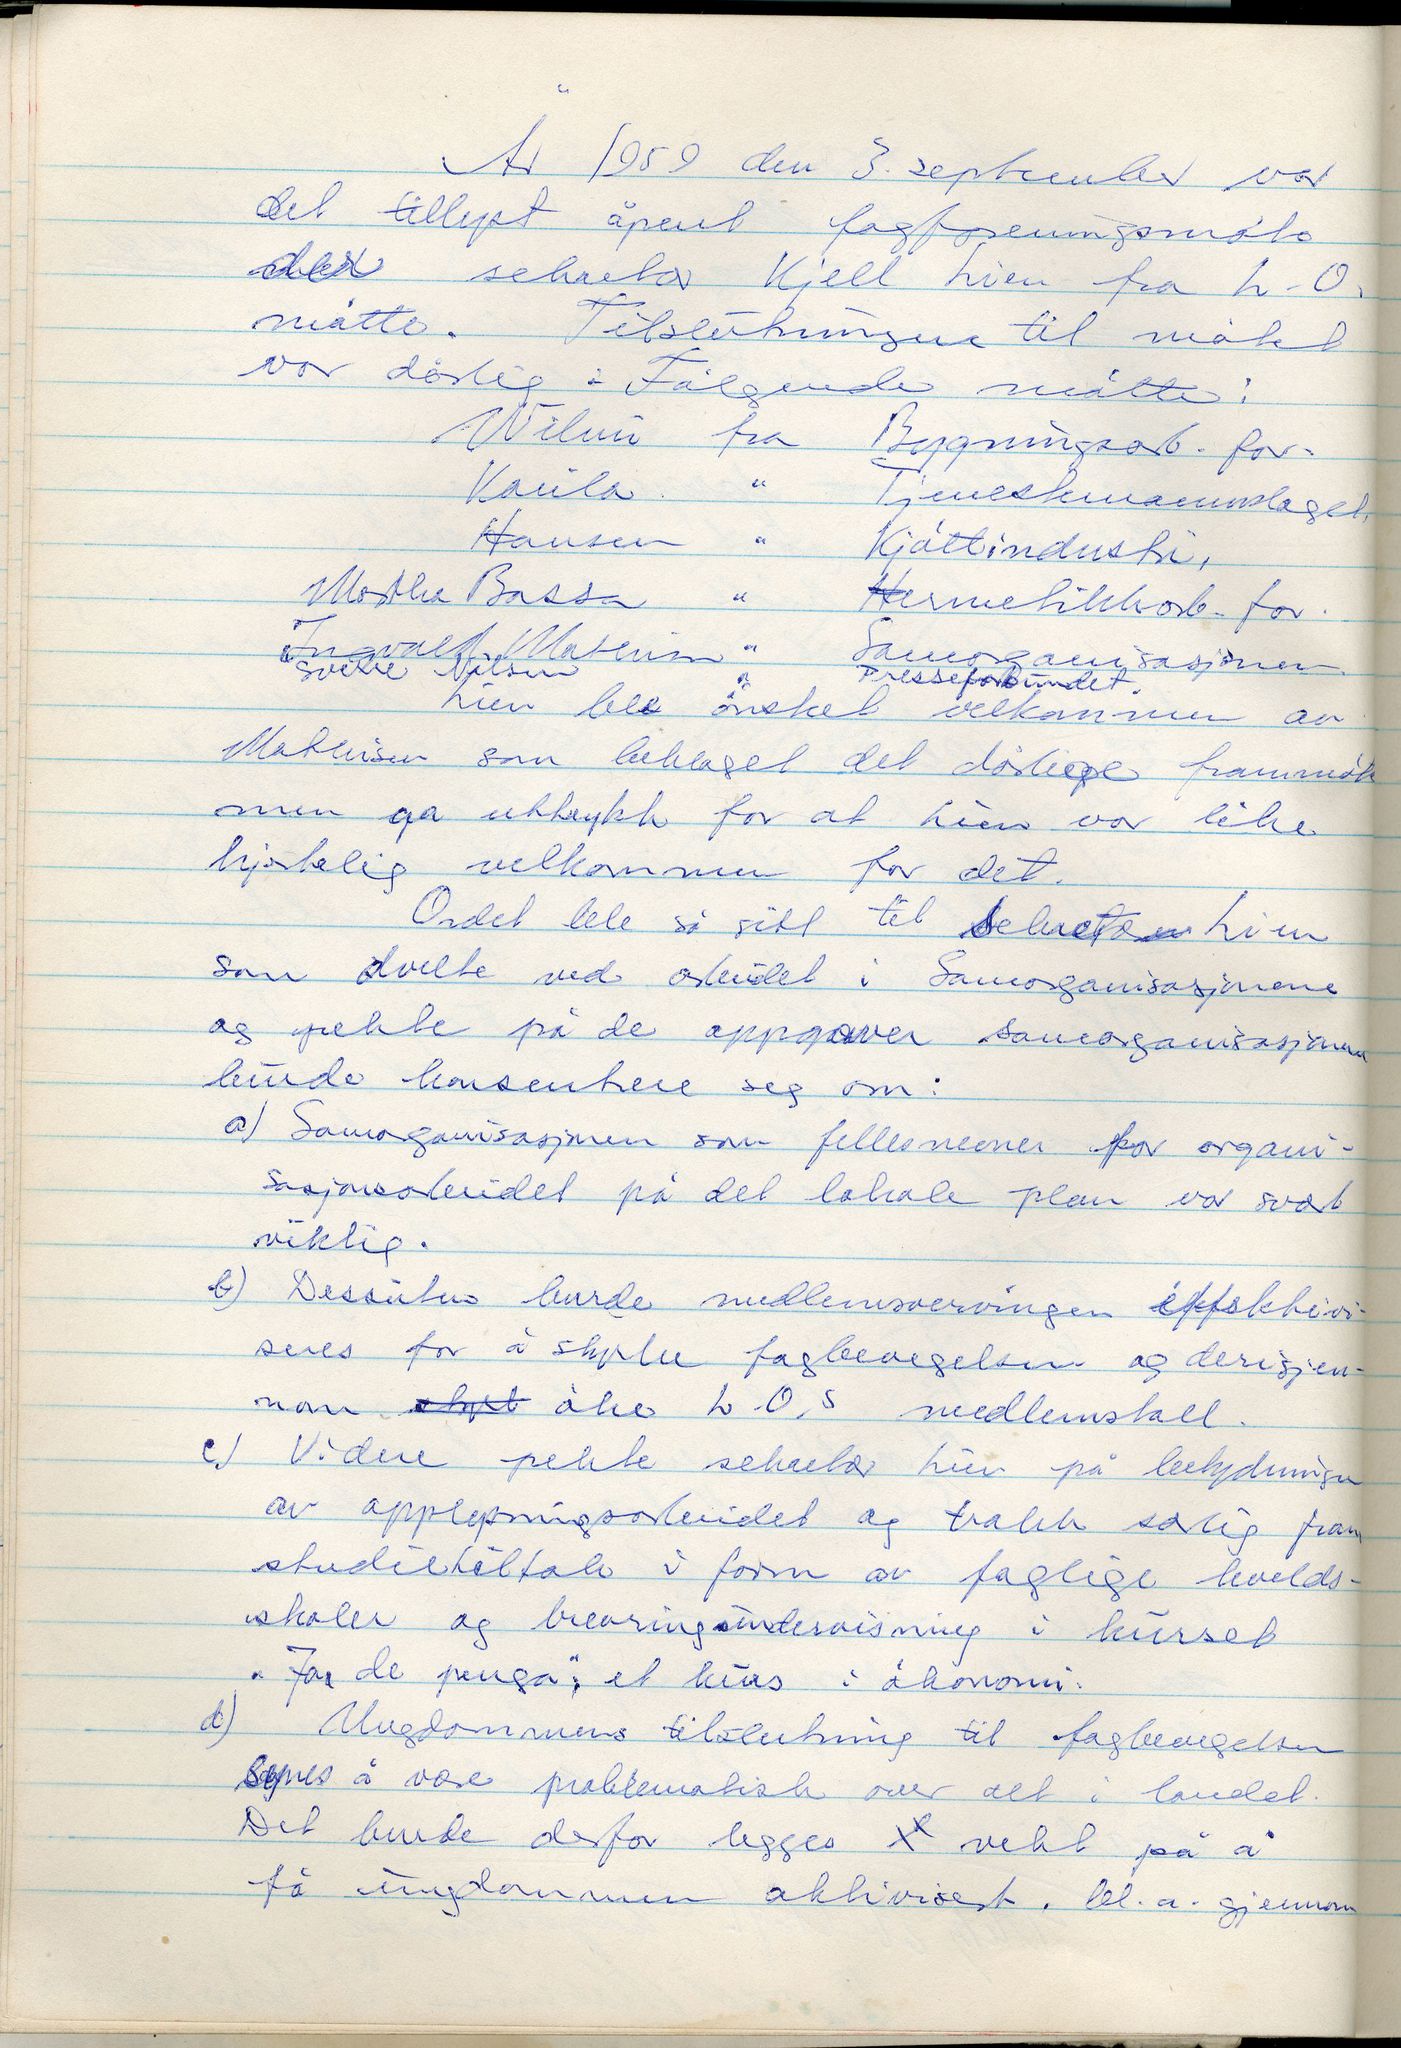 År 1959 den 3. september var
det tillyst åpent fagforeningsmøte
der sekretær Kjell Lien fra L.O.
møtte. Tilslutningen til møtet
var dårlig. Følgende møtte:
fra Bygningsarb. for.
Kaula " Tjenestemannslaget.
Hansen " Kjøttindustri,
Martha Bassa " Hermetikkarb. for.
Ingvald Mathisen " Samorganisasjonen
Sverre Nilsen " Presseforbundet.
Lien ble ønsket velkommen av
Mathisen som beklaget det dårlige frammøte
men ga uttrykk for at Lien var like
hjertelig velkommen for det.
Ordet ble så gitt til sekretær Lien
som dvelte ved arbeidet i Samorganisasjonene
og pekte på de oppgaver samorganisasjonene
burde konsentrere seg om:
a) Samorganisasjonen som fellesnevner for organi-
sasjonsarbeidet på det lokale plan var svært
viktig.
b) Dessuten burde medlemsvervingen effektivi-
seres for å styrke fagbevegelsen og derigjen-
nom styrt øke L.O,s medlemstall.
c) Videre pekte sekretær Lien på betydningen
av opplysningsarbeidet og trakk særlig fram
studietiltak i form av faglige kvelds-
skoler og brevringundervisning i kurset
"Før de penga", et kurs i økonomi.
d) Ungdommens tilslutning til fagbevegelsen
synes å være problematisk over alt i landet.
Det burde derfor legges vekt på å
få ungdommen aktivisert. bl.a. gjennom